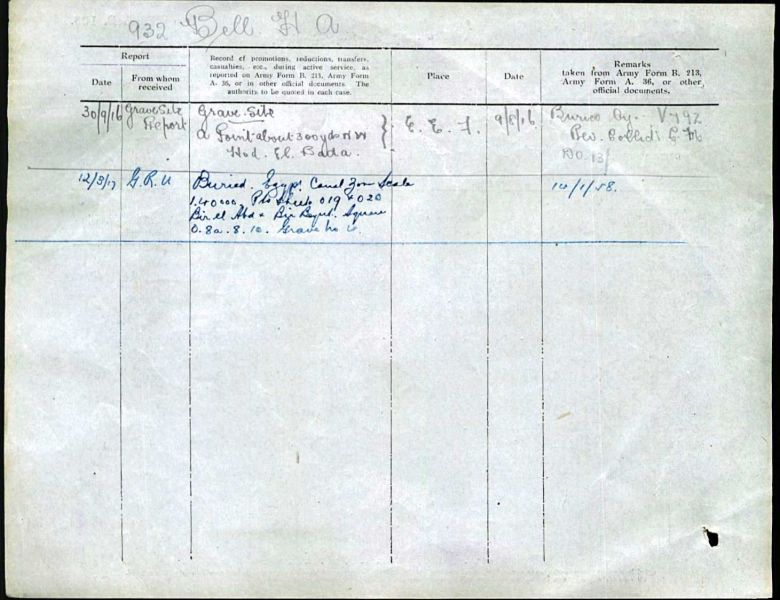 932 Bell H A
Report
Date
From whom received
Record of promotions, reductions, transfers, casualties, etc., during active service, as reported on Army Form B. 213, Army Form A. 36, or in other official documents. The authority to be quoted in each case.
Place
Date
Remarks
taken from Army Form B. 213, Army Form A. 36, or other official documents.
30/9/16 Grave Site Report
Grave Site
a Point about 300 yds N W
Hod. El. Bada.
E. E. F.
9/8/16
Buried by.
Rev.
DO 13/
12/3/17 G.R.U
Buried. Egypt Canal Zone Scale
1.40000, Pts Sheets 019 & 020
Bir el Abd & Bir Bayud. Square
O. 8a. 8. 10. Grave No 6.
14/1/58.